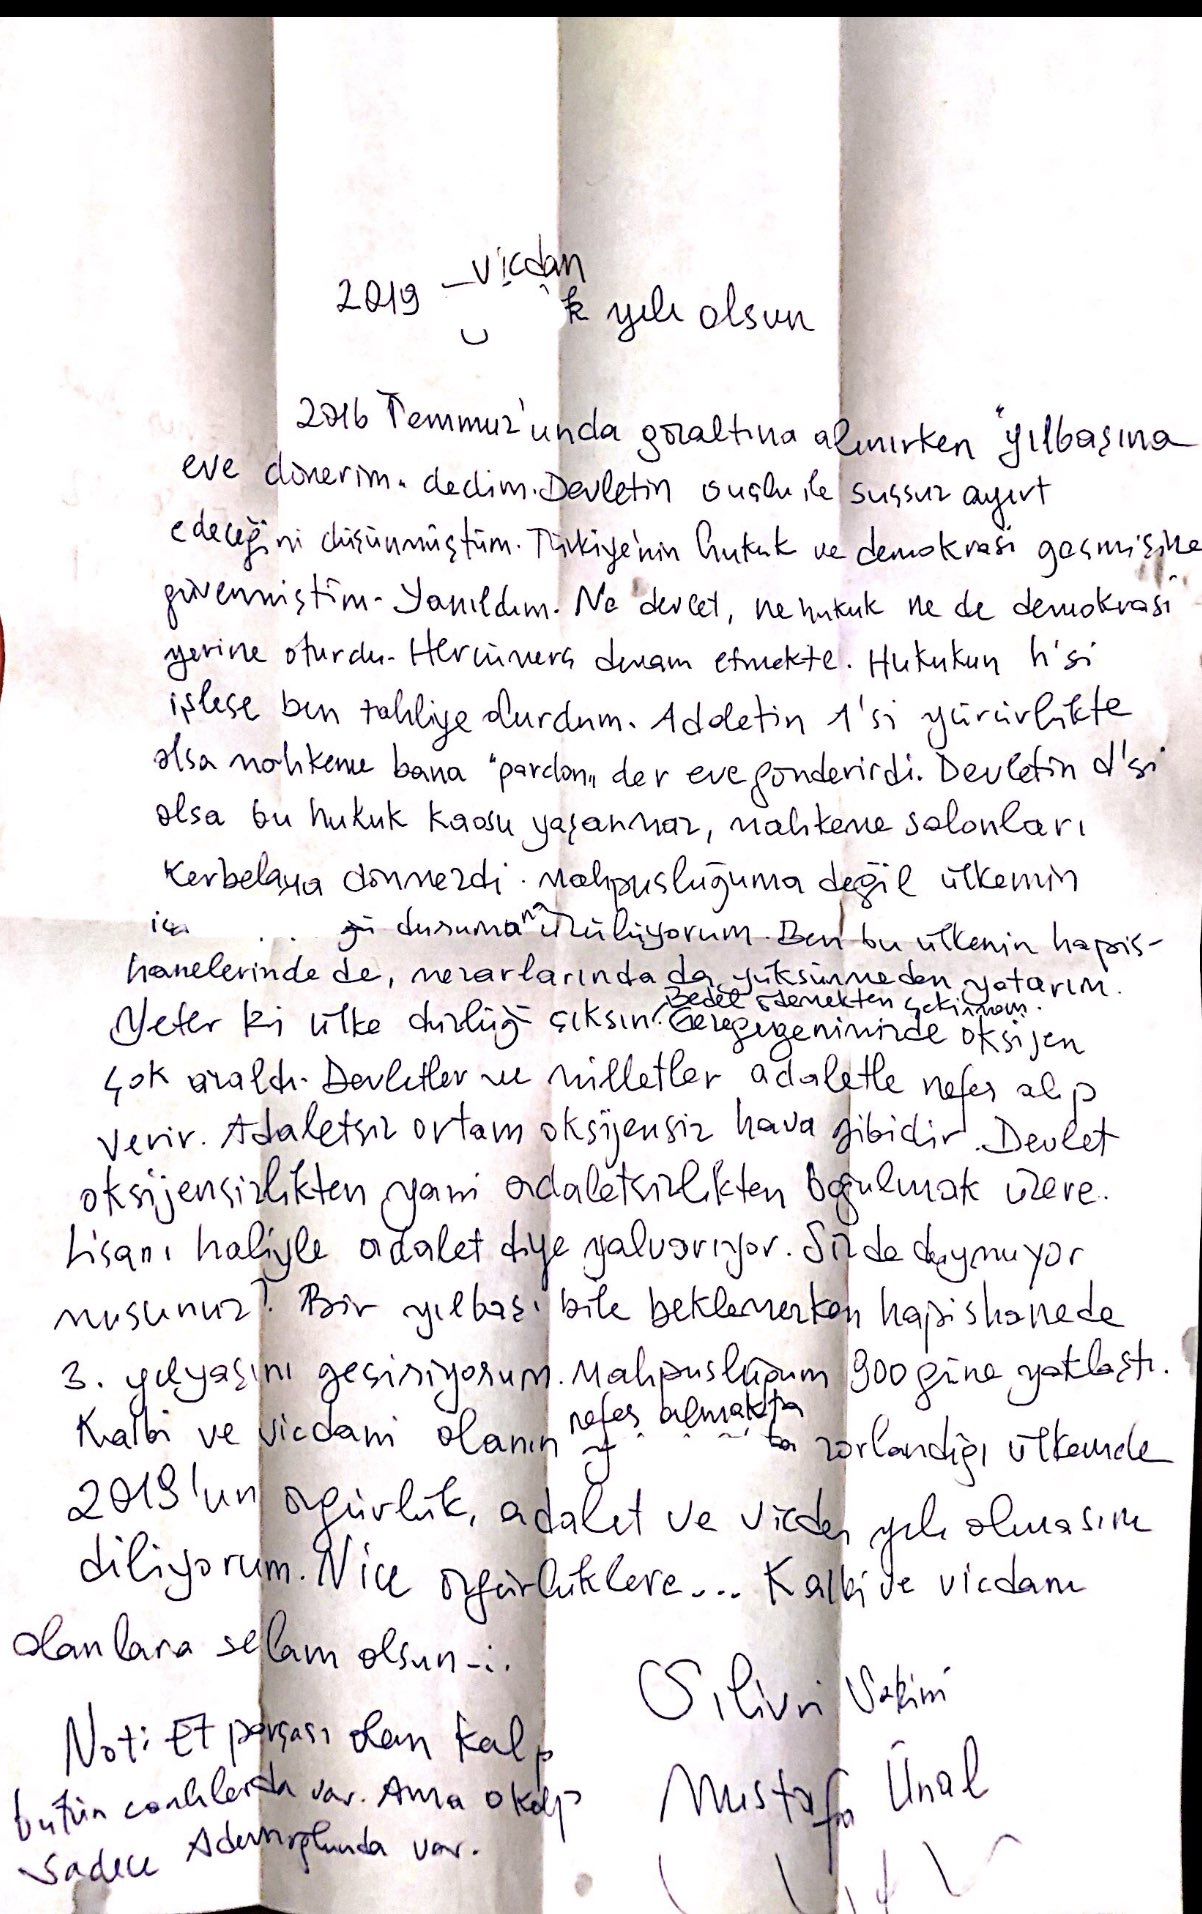 2019 vicdan yılı olsun
2016 Temmuz'unda gözaltına alınırken "yılbaşına
eve dönerim" dedim. Devletin suçlu ile suçsuz ayırt
edeceğini düşünmüştüm. Türkiye'nin hukuk ve demokrasi geçmişine
güvenmiştim. Yanıldım. Ne devlet, ne hukuk ne de demokrasi
yerine oturdu. Hercümerç devam etmekte. Hukukun h'si
işlese ben tahliye olurdum. Adaletin A'sı yürürlükte
olsa mahkeme bana "pardon" der eve gönderirdi. Devletin d'si
olsa bu hukuk kaosu yaşanmaz, mahkeme salonları
Kerbelaya dönmezdi. Mahpusluğuma değil ülkemin
duruma üzülüyorum. Ben bu ülkenin hapis-
hanelerinde de, mezarlarında da yüksünmeden yatarım.
Bedel ödemekten çekinmem.
Yeter ki ülke düzlüğe çıksın. Gezegenimizde oksijen
çok azaldı. Devletler ve milletler adaletle nefes alıp
verir. Adaletsiz ortam oksijensiz hava gibidir. Devlet
oksijensizlikten yani adaletsizlikten boğulmak üzere.
Lisanı haliyle adalet diye yalvarıyor. Siz de duymuyor
musunuz? Bir yılbaşı bile beklemezken hapishanede
3. yılbaşını geçiriyorum. Mahpusluğum 900 güne yaklaştı.
Kalbi ve vicdanı olanın nefes almakta zorlandığı ülkemde
2019'un özgürlük, adalet ve vicdan yılı olmasını
diliyorum. Nice özgürlüklere... Kalbi ve vicdanı
olanlara selam olsun...
Silivri Sakini
Mustafa Ünal
Not: Et parçası olan kalp
bütün canlılarda var. Ama o kalp
sadece Ademoğlunda var.